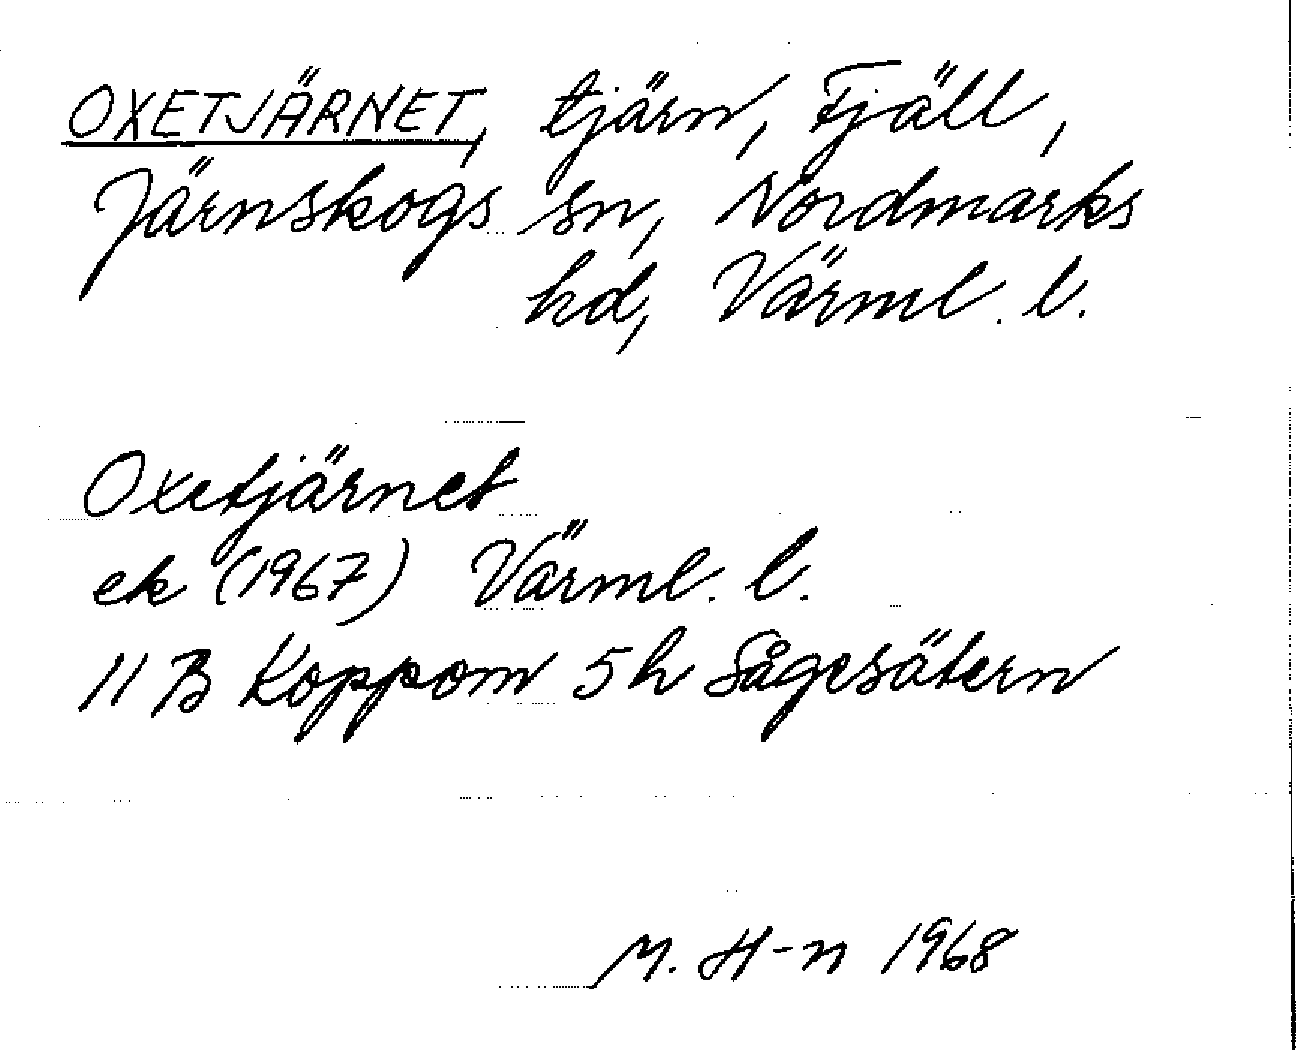 OXETJÄRNET, tjärn, Fjäll,
Järnskogs sn, Nordmarks
hd, Värml. l.
Oxetjärnet
ek (1967) Värml. l.
11 B Koppom 5h Sågesätern
M. H-n 1968